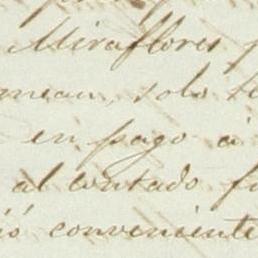 Miraflores
solo
en pago á
al contado
conveniente